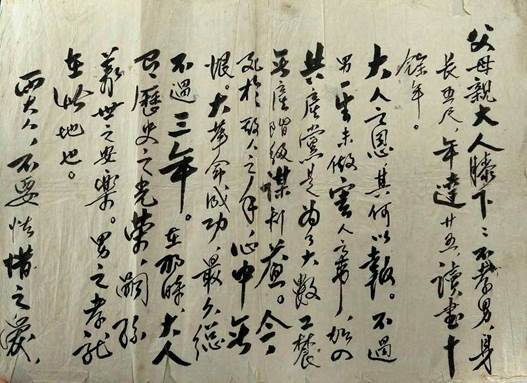 父母親大人膝下：不孝男，身
長五尺，年達廿五，讀書十
餘年。
大人之恩其何以報。不過
男一生未做害人之事，加入
共產黨是为了大數工農
無產階級謀利益。今
死於敌人之手，心中無
恨。大革命成功，最久總
不過三年。在那時，大人
歷史之光榮，嗣孫
萬世之安樂。男之孝就
在此地也。
两大人，不要怜惜之愛，